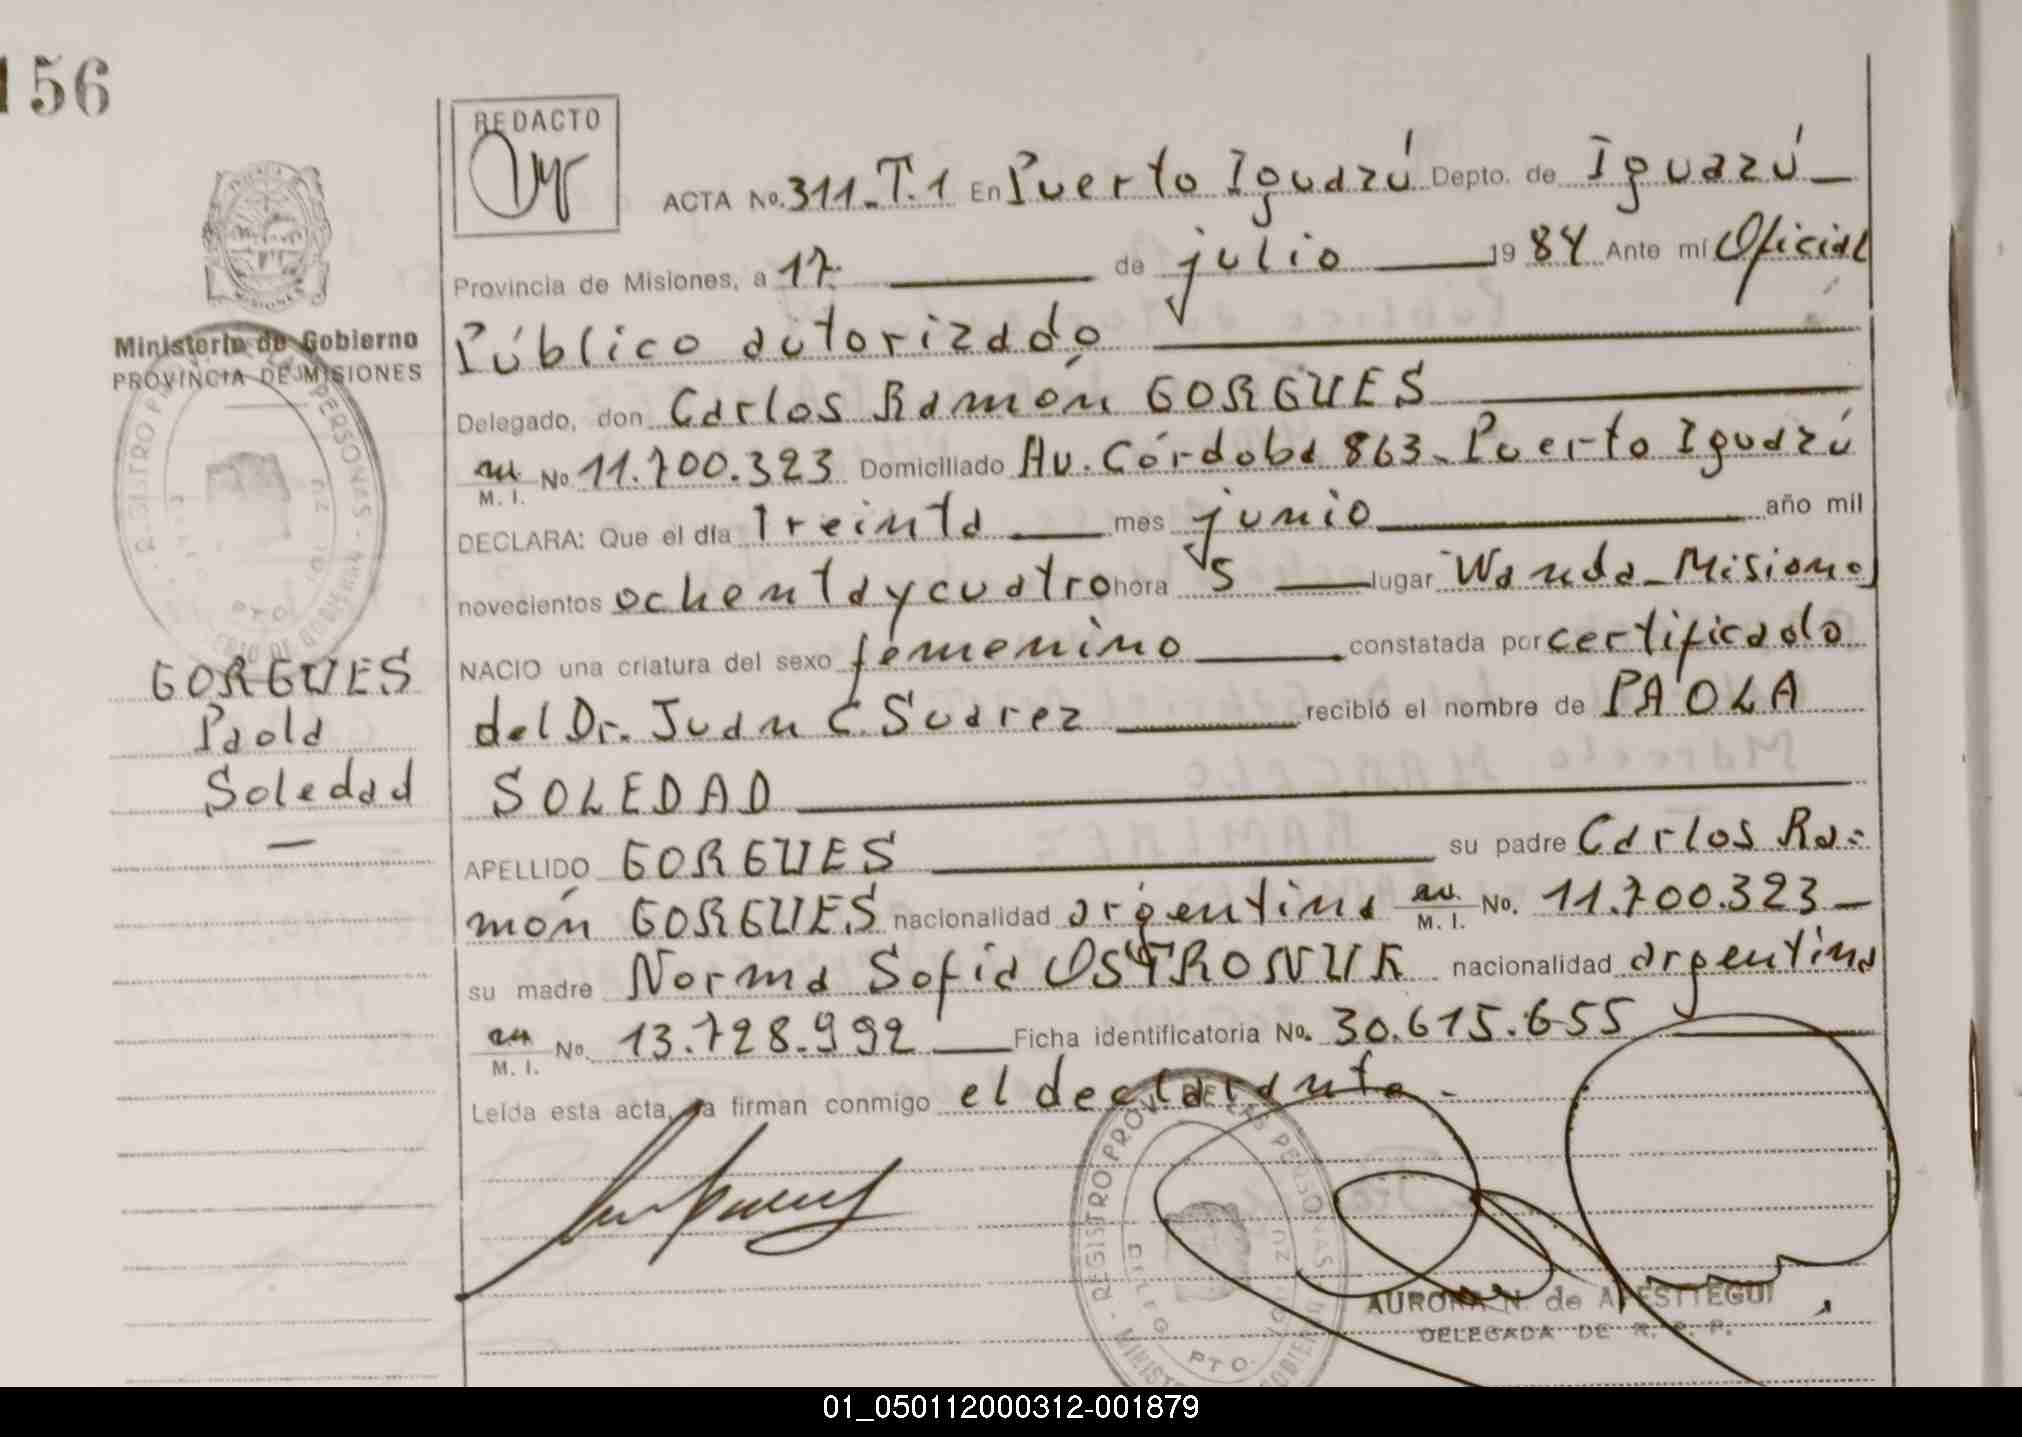 156
REDACTO
ACTA No. 311_T.1 En Puerto Iguazú Depto. de Iguazú
Provincia de Misiones, a 17 de julio 1984 Ante mí Oficial
Ministerio de Gobierno
PROVINCIA DE MISIONES
Público autorizado
Delegado, don Carlos Ramón GORGUES
M. I. No 11.700.323 Domiciliado Av. Córdoba 863_Puerto Iguazú
DECLARA: Que el día Treinta mes junio año mil
novecientos ochentaycuatro hora 5 lugar Wanda_Misiones
NACIO una criatura del sexo femenino constatada por certificado
del Dr. Juan C. Suarez recibió el nombre de PAOLA
SOLEDAD
GORGUES
Paola
Soledad
APELLIDO GORGUES su padre Carlos Ra=
món GORGUES nacionalidad argentina M. I. No. 11.700.323
su madre Norma Sofia OSTRONUK nacionalidad argentina
M. I. No. 13.728.992 Ficha identificatoria No. 30.615.655
Leída esta acta, la firman conmigo el declarante.
REGISTRO PROV. DE LAS PERSONAS
PTO.
AURORA N. de APESTTEGUI
DELEGADA DE R. P. P.
01_050112000312-001879